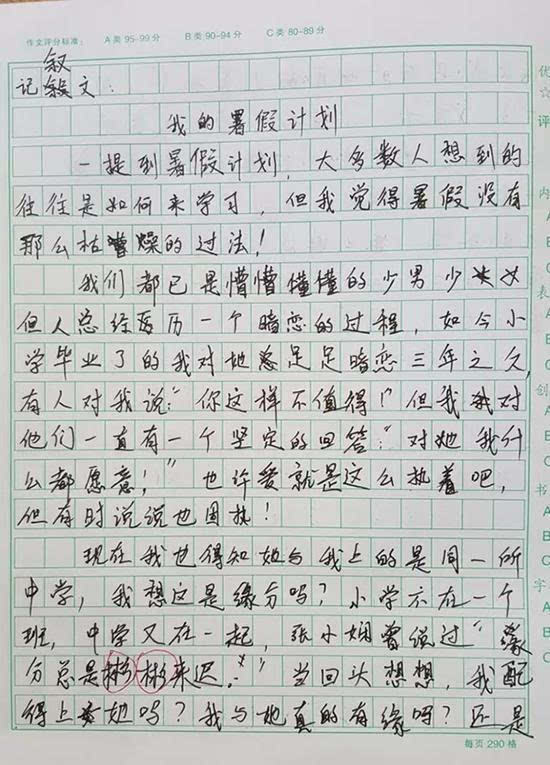 作文评分标准： A类 95-99分 B类 90-94分 C类 80-89分
叙
记 文：
我的暑假计划
一提到暑假计划，大多数人想到的
往往是如何来学习，但我觉得暑假没有
那么枯燥的过法！
我们都已是懵懵懂懂的少男少女
但人总经历一个暗恋的过程，如今小
学毕业了的我对她足足暗恋三年之久，
有人对我说：“你这样不值得！”但我对
他们一直有一个坚定的回答：“对她我什
么都愿意！”也许爱就是这么执着吧，
但有时说说也固执！
现在我也得知她与我上的是同一所
中学，我想这是缘分吗？小学不在一个
班，中学又在一起，张小娴曾说过“缘
分总是 来迟。”当回头想想，我配
得上她吗？我与她真的有缘吗？还是
每页 290 格
优
☆
评
内
A
B
C
表
A
B
C
创
A
B
C
书
A
B
C
字